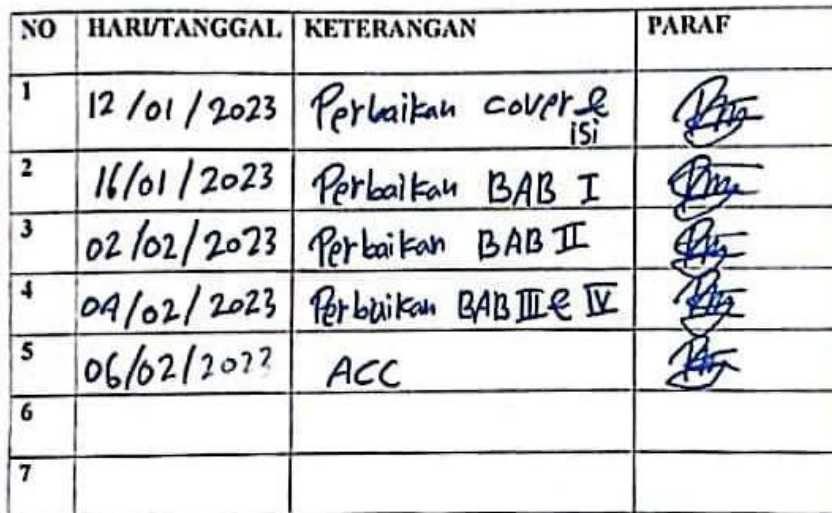 NO HARI/TANGGAL KETERANGAN PARAF
1 12/01/2023 Perbaikan cover &
isi
2 16/01/2023 Perbaikan BAB I
3 02/02/2023 Perbaikan BAB II
4 04/02/2023 Perbaikan BAB III & IV
5 06/02/2023 ACC
6
7